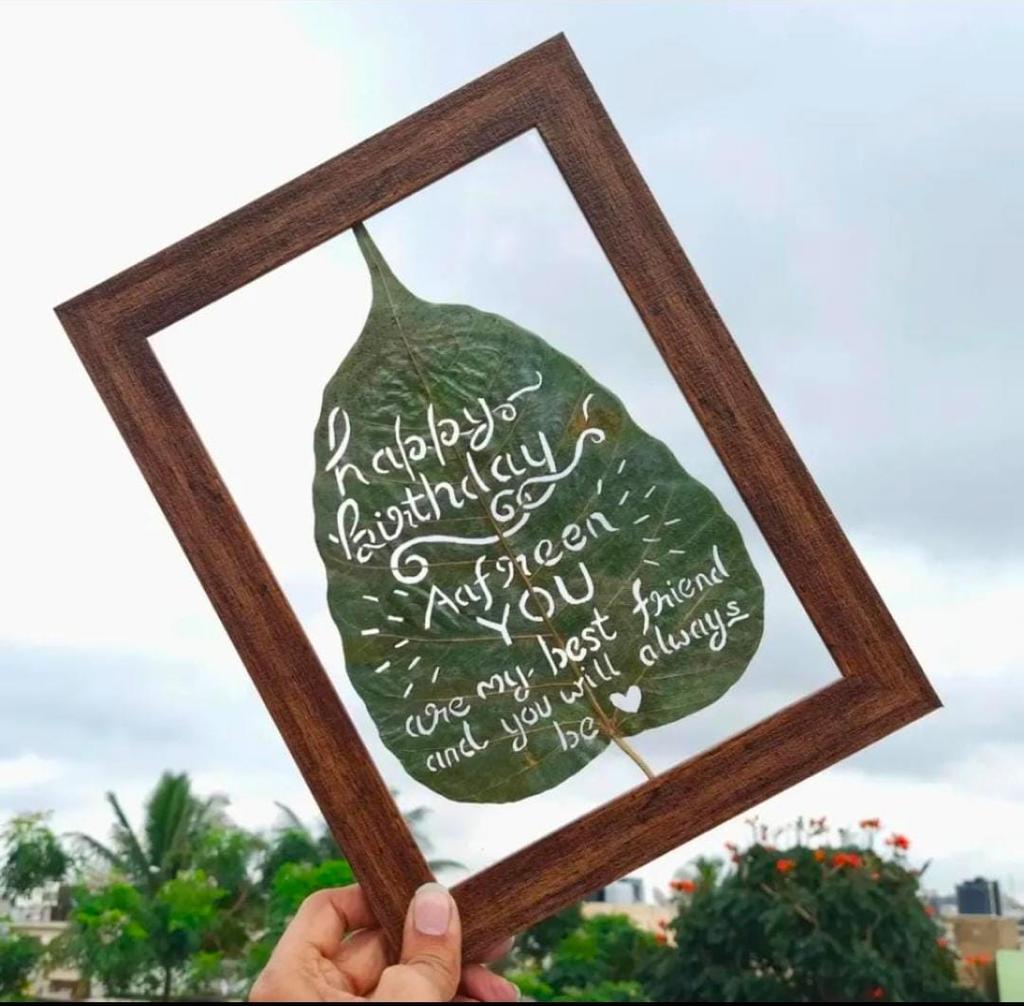 happy
birthday
Aafreen
YOU
are my best friend
and you will always
be